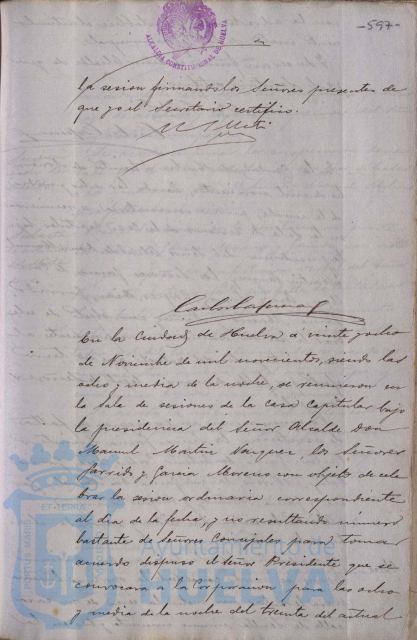 -597-
ALCALDIA CONSTITUCIONAL DE HUELVA
la sesion firmando los Señores presentes de
que yo el Secretario certifico.
En la Ciudad de Huelva á veinte y ocho
de Noviembre de mil novecientos, siendo las
ocho y media de la noche, se reunieron en
la Sala de sesiones de la casa capitular bajo
la presidencia del Señor Alcalde Don
Manuel Martin Vazquez, los Señores
Garrido y Garcia Moreno con objeto de cele
brar la sesion ordinaria correspondiente
al dia de la fecha, y no resultando número
bastante de Señores Concejales para tomar
acuerdo dispuso el Señor Presidente que se
convocara á la Corporacion para las ocho
y media de la noche del treinta del actual
ET TERRA
Ayuntamiento de
HUELVA